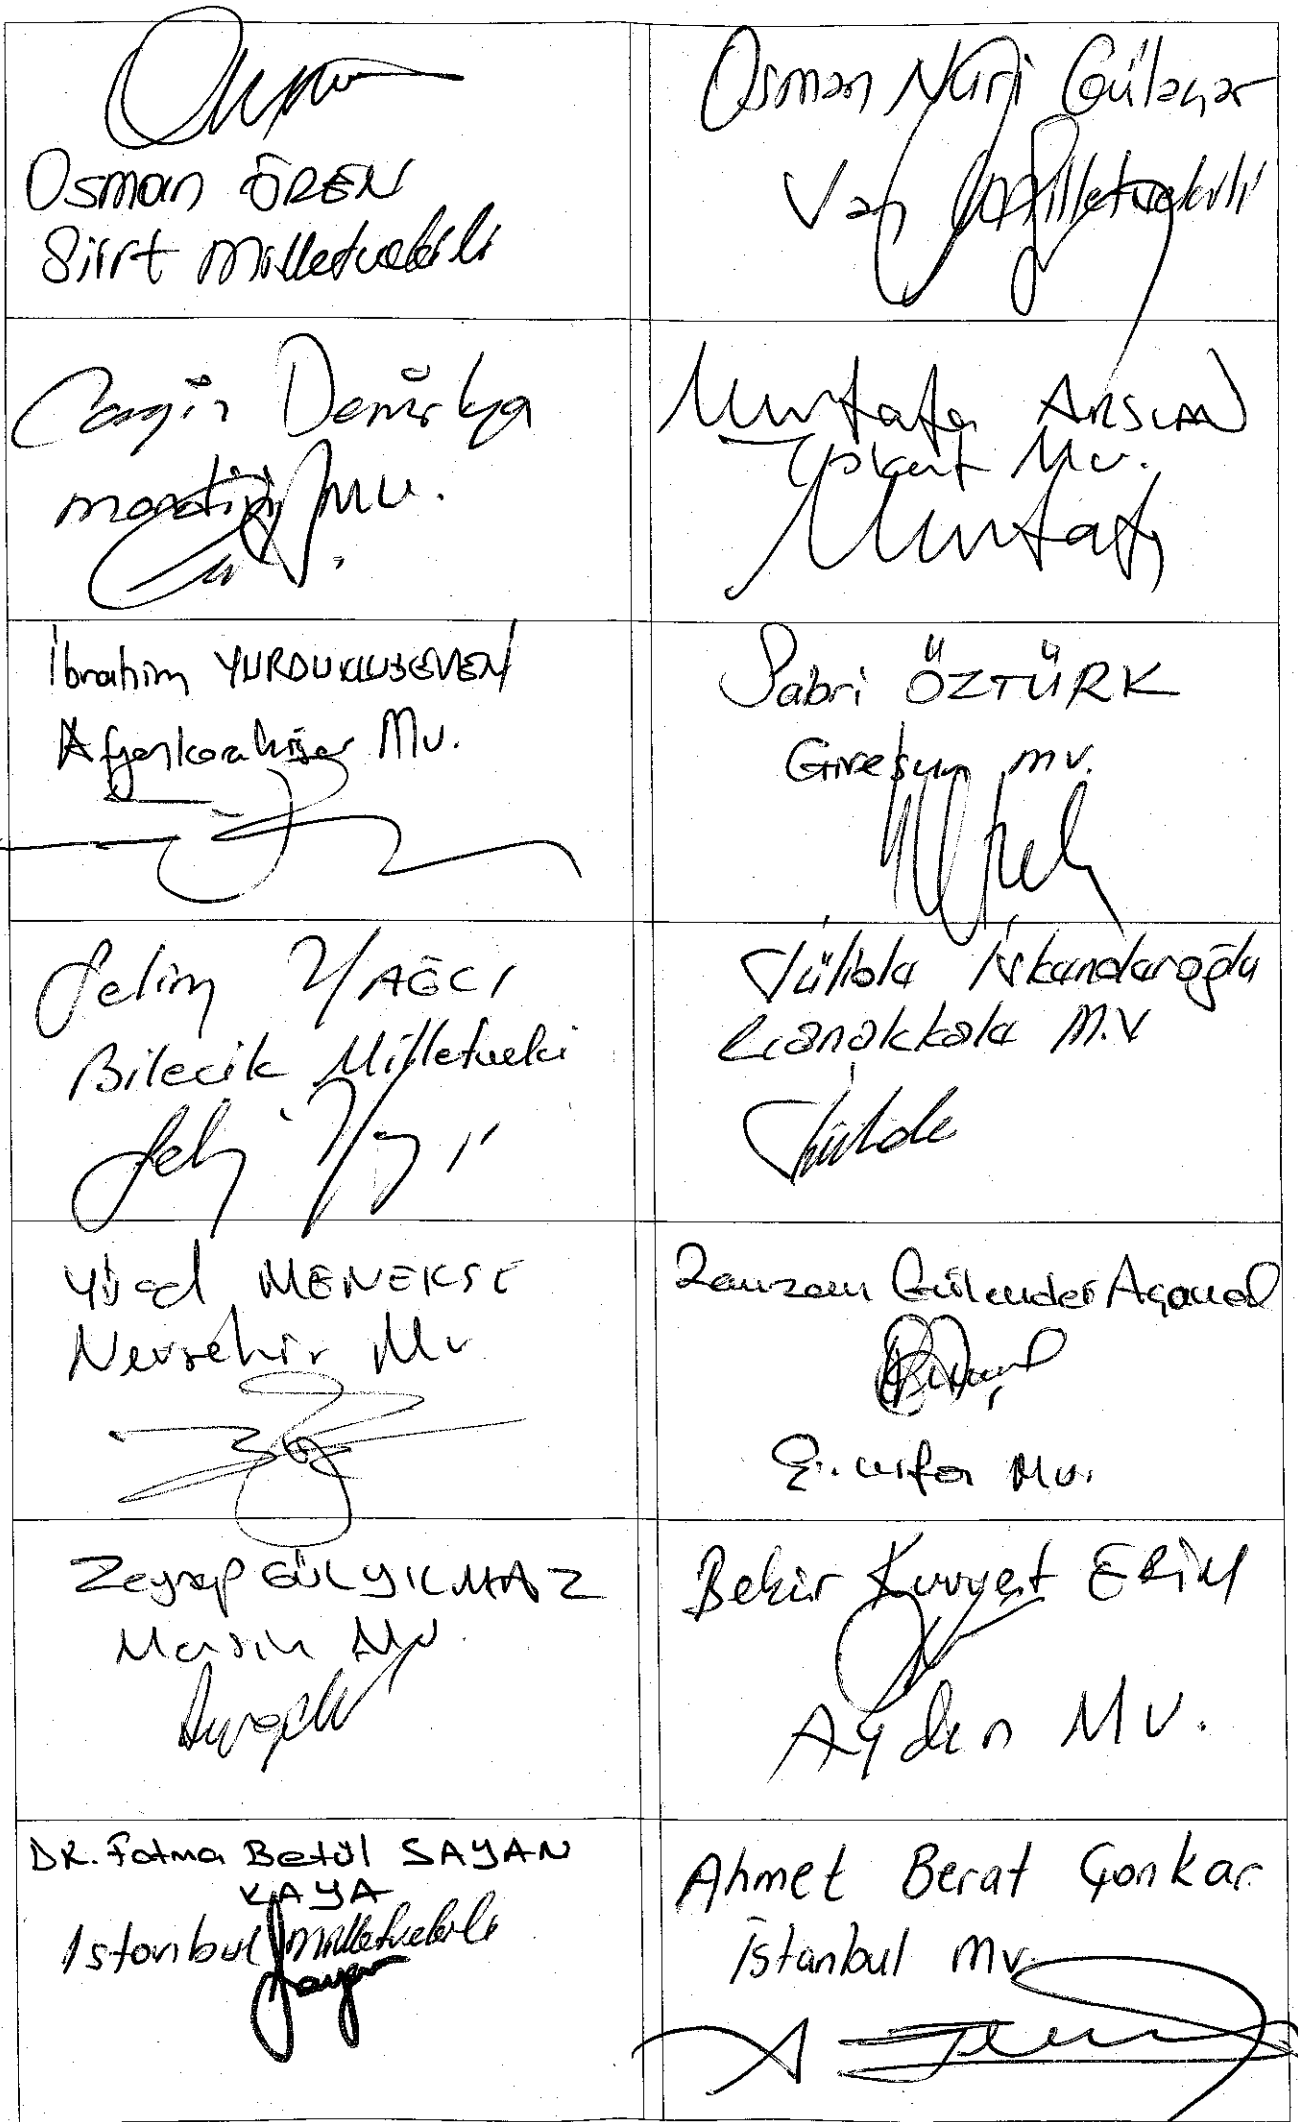 Osman ÖREN
Siirt Milletvekili
Osman Nuri Gülaçar
Van Milletvekili
Cengiz Demirkaya
Mardin Mv.
Mustafa ARSLAN
Tokat Mv.
Mustafa
İbrahim YURDUNUSEVEN
Afyonkarahisar Mv.
Sabri ÖZTÜRK
Giresun mv.
Selim YAĞCI
Bilecik Milletveki
Selim Yağcı
Jülide İskenderoğlu
Çanakkale M.V
Jülide
Yücel MENEKŞE
Nevşehir Mv
Zemzem Gülender Açanal
Ş.urfa Mv.
Zeynep GÜL YILMAZ
Mersin Mv.
Bekir Kuvvet ERİM
Aydın Mv.
DR. Fatma Betül SAYAN
KAYA
İstanbul Milletvekili
Ahmet Berat Çonkar
İstanbul Mv.